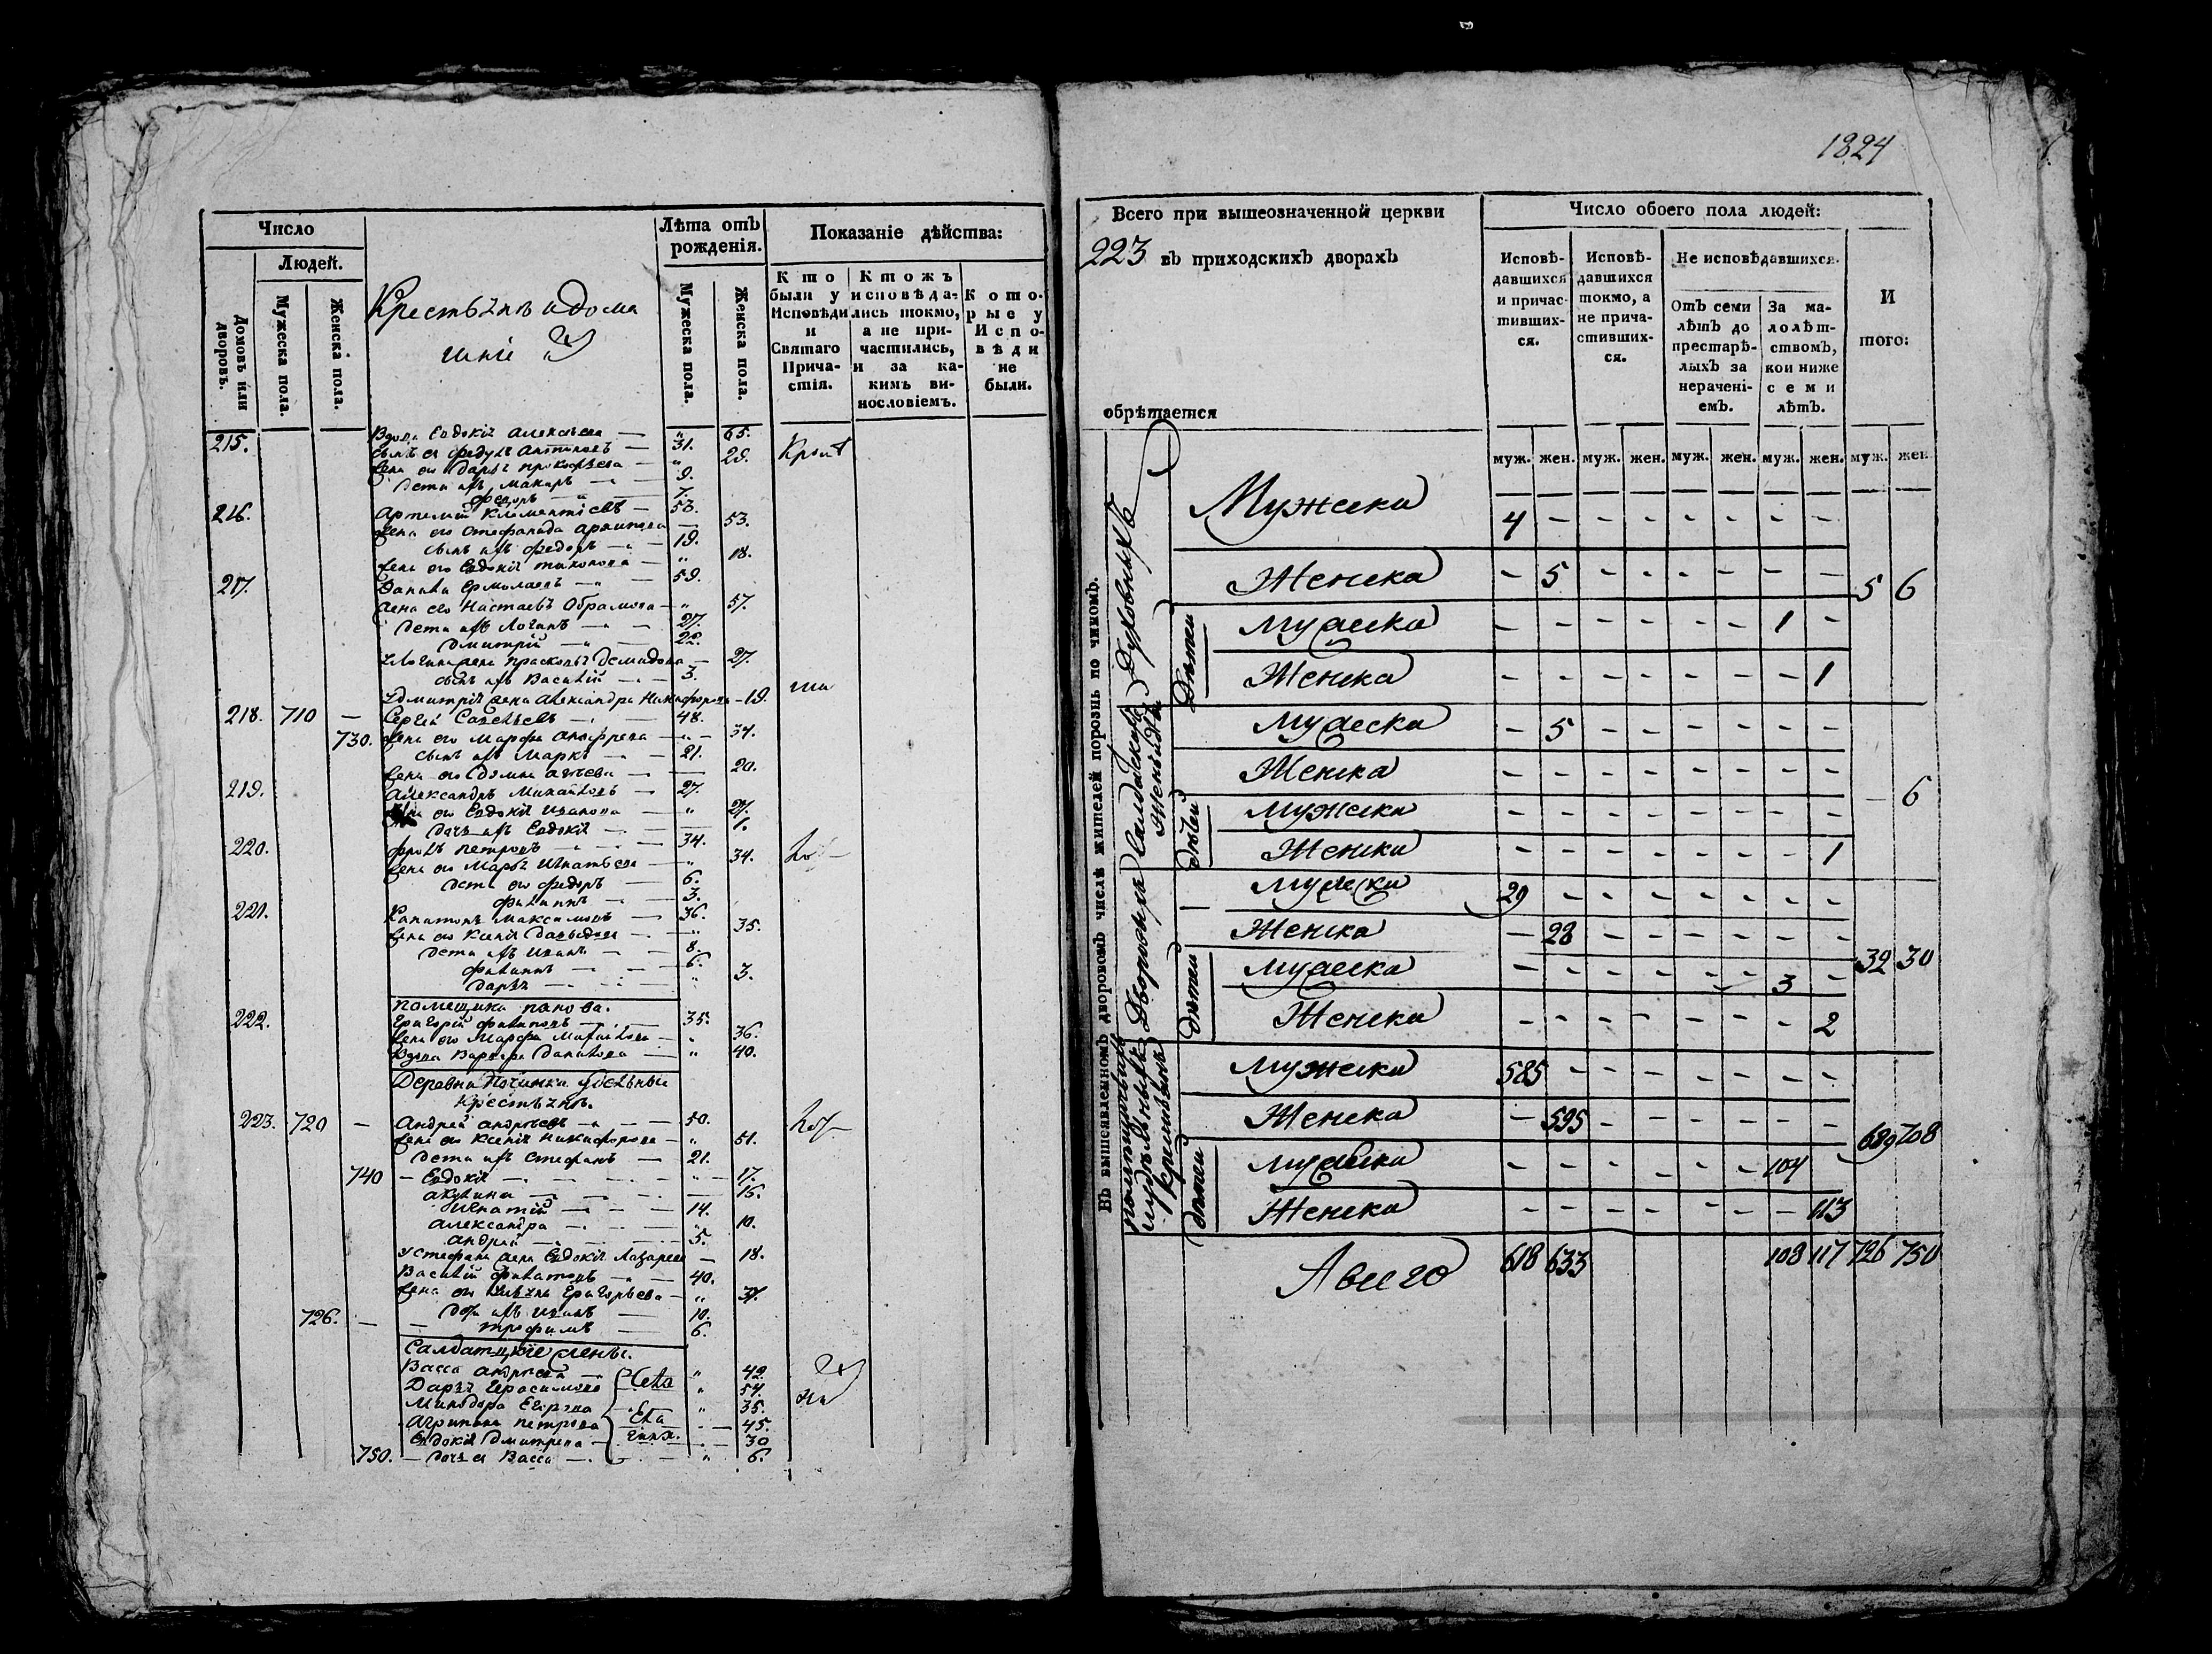 Число
Людей.
Домовъ или дворовъ.
Мужеска пола.
Женска пола.
Крестьянъ и дома
шніе
Лѣта отъ рожденія.
Мужеска пола.
Женска пола.
Показаніе дѣйства:
Кто были у Исповѣди и Святаго Причастія.
Ктожъ исповѣдались токмо, а не причастились, и за какимъ винословіемъ.
Которые у Исповѣди не были.
215. Вдова Евдокія Алексѣева — „ 65.
сынъ ея Федулъ — 31.
жена его Дарья Прокофьева — „ 29.
Дети ихъ Макаръ — 9.
Федоръ — 7.
216. Артемий Климентіевъ — 53.
жена его Стефанида Архипова — 53.
сынъ ихъ Федоръ — 19.
жена его Евдокія — „ 18.
217. Данила Ермолаевъ — 59.
жена его Настасья Абрамова — „ 57.
Дети ихъ Логинъ — 27.
Дмитрій — 22.
у Логина жена Прасковья Демидова — 27.
сынъ ихъ Василій — 3.
у Дмитрія жена Александра Никифорова — 19.
218. 710 — Сергей Савельевъ — 48.
730. жена его Марфа — 34.
сынъ ихъ Маркъ — 21.
жена его Домна — 20.
219. Александръ Михайловъ — 27.
жена его Евдокія Иванова — „ 27.
дочь ихъ Евдокія — 1.
220. Фролъ Петровъ — 34.
жена его Марья Игнатьева — „ 34.
Дети его Федоръ — 6.
Филиппъ — 3.
221. Капитонъ Максимовъ — 36.
жена его Ксенія Давыдова — „ 35.
Дети ихъ Иванъ — 8.
Филиппъ — 6.
Дарья — „ 3.
Помещика Панова.
222. Григорій Филиповъ — 35.
жена его Марфа Михайлова — „ 36.
Вдова Варвара Данилова — „ 40.
Деревни Починка удельные
крестьяне.
223. 720 — Андрей Андреевъ — 50.
жена его Ксенія Никифорова — „ 51.
Дети ихъ Стефанъ — 21.
740 — Евдокія — „ 17.
Акулина — 15.
Игнатій — 14.
Александра — „ 10.
Андрей — 5.
у Стефана жена Евдокія Лазарева — 18.
Василій Филатовъ — 40.
жена его Ульяна Григорьева — „ 37.
Дети ихъ Иванъ — 10.
726. — Трофимъ — 6.
Салдатскіе жены.
Васса Андреева „ 42.
Дарья Герасимова Села „ 54.
Минодора Егорова „ 35.
Агрипина Петрова Ела — 45.
Евдокія Дмитрева — 30
750. — Дочь ея Васса — „ 6.
1824
Всего при вышеозначенной церкви
223 въ приходскихъ дворахъ
обрѣтается
Число обоего пола людей:
Исповѣдавшихся и причастившихся.
Исповѣдавшихся токмо, а не причастившихся.
Не исповѣдавшихся.
Отъ семи лѣтъ до престарѣлыхъ за нераченіемъ.
За малолѣтствомъ, кои ниже семи лѣтъ.
И того:
муж. жен. муж. жен. муж. жен. муж. жен. муж. жен.
Въ вышеявленномъ дворовомъ числѣ жителей порознь по чиномъ.
Духовныхъ
Мужеска 4 - - - - - - -
Женска - 5 - - - - - - 5 6
Дѣтей
Мужеска - - - - - - 1 -
Женска - - - - - - - 1
Салдатскихъ женъ и дѣтей
Мужеска - 5 - - - - - -
Женска - - - - - - - -
Дѣтей
Мужеска - - - - - - - - — 6
Женска - - - - - - - 1
Дворовыхъ
Мужеска 29 - - - - - - -
Женска - 28 - - - - - -
Дѣтей
Мужеска - - - - - - 3 - 32 30
Женска - - - - - - - 2
крестьянъ
Мужеска 585 - - - - - - -
Женска - 595 - - - - - - 689 708
Дѣтей
Мужеска - - - - - - 104
Женска - - - - - - - 113
А всего 618 633 108 117 726 750